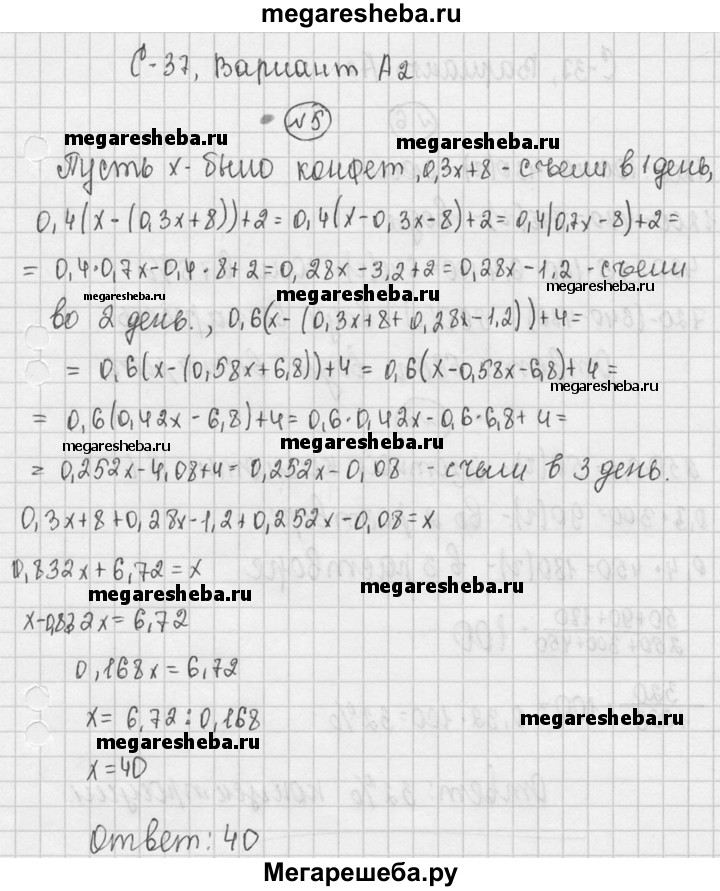 megaresheba.ru
С-37, Вариант А2
№5
megaresheba.ru
megaresheba.ru
Пусть x - было конфет, 0,3x+8 - съели в 1 день,
0,4(x-(0,3x+8))+2=0,4(x-0,3x-8)+2=0,4(0,7x-8)+2=
= 0,4·0,7x-0,4·8+2=0,28x-3,2+2=0,28x-1,2 - съели
megaresheba.ru
megaresheba.ru
megaresheba.ru
во 2 день., 0,6(x-(0,3x+8+0,28x-1,2))+4=
= 0,6(x-(0,58x+6,8))+4=0,6(x-0,58x-6,8)+4=
megaresheba.ru
= 0,6(0,42x-6,8)+4=0,6·0,42x-0,6·6,8+4=
megaresheba.ru
megaresheba.ru
= 0,252x-4,08+4=0,252x-0,08 - съели в 3 день.
0,3x+8+0,28x-1,2+0,252x-0,08=x
0,832x+6,72=x
megaresheba.ru
megaresheba.ru
x-0,832x=6,72
0,168x=6,72
x=6,72:0,168
megaresheba.ru
megaresheba.ru
x=40
Ответ: 40
Мегарешеба.ру